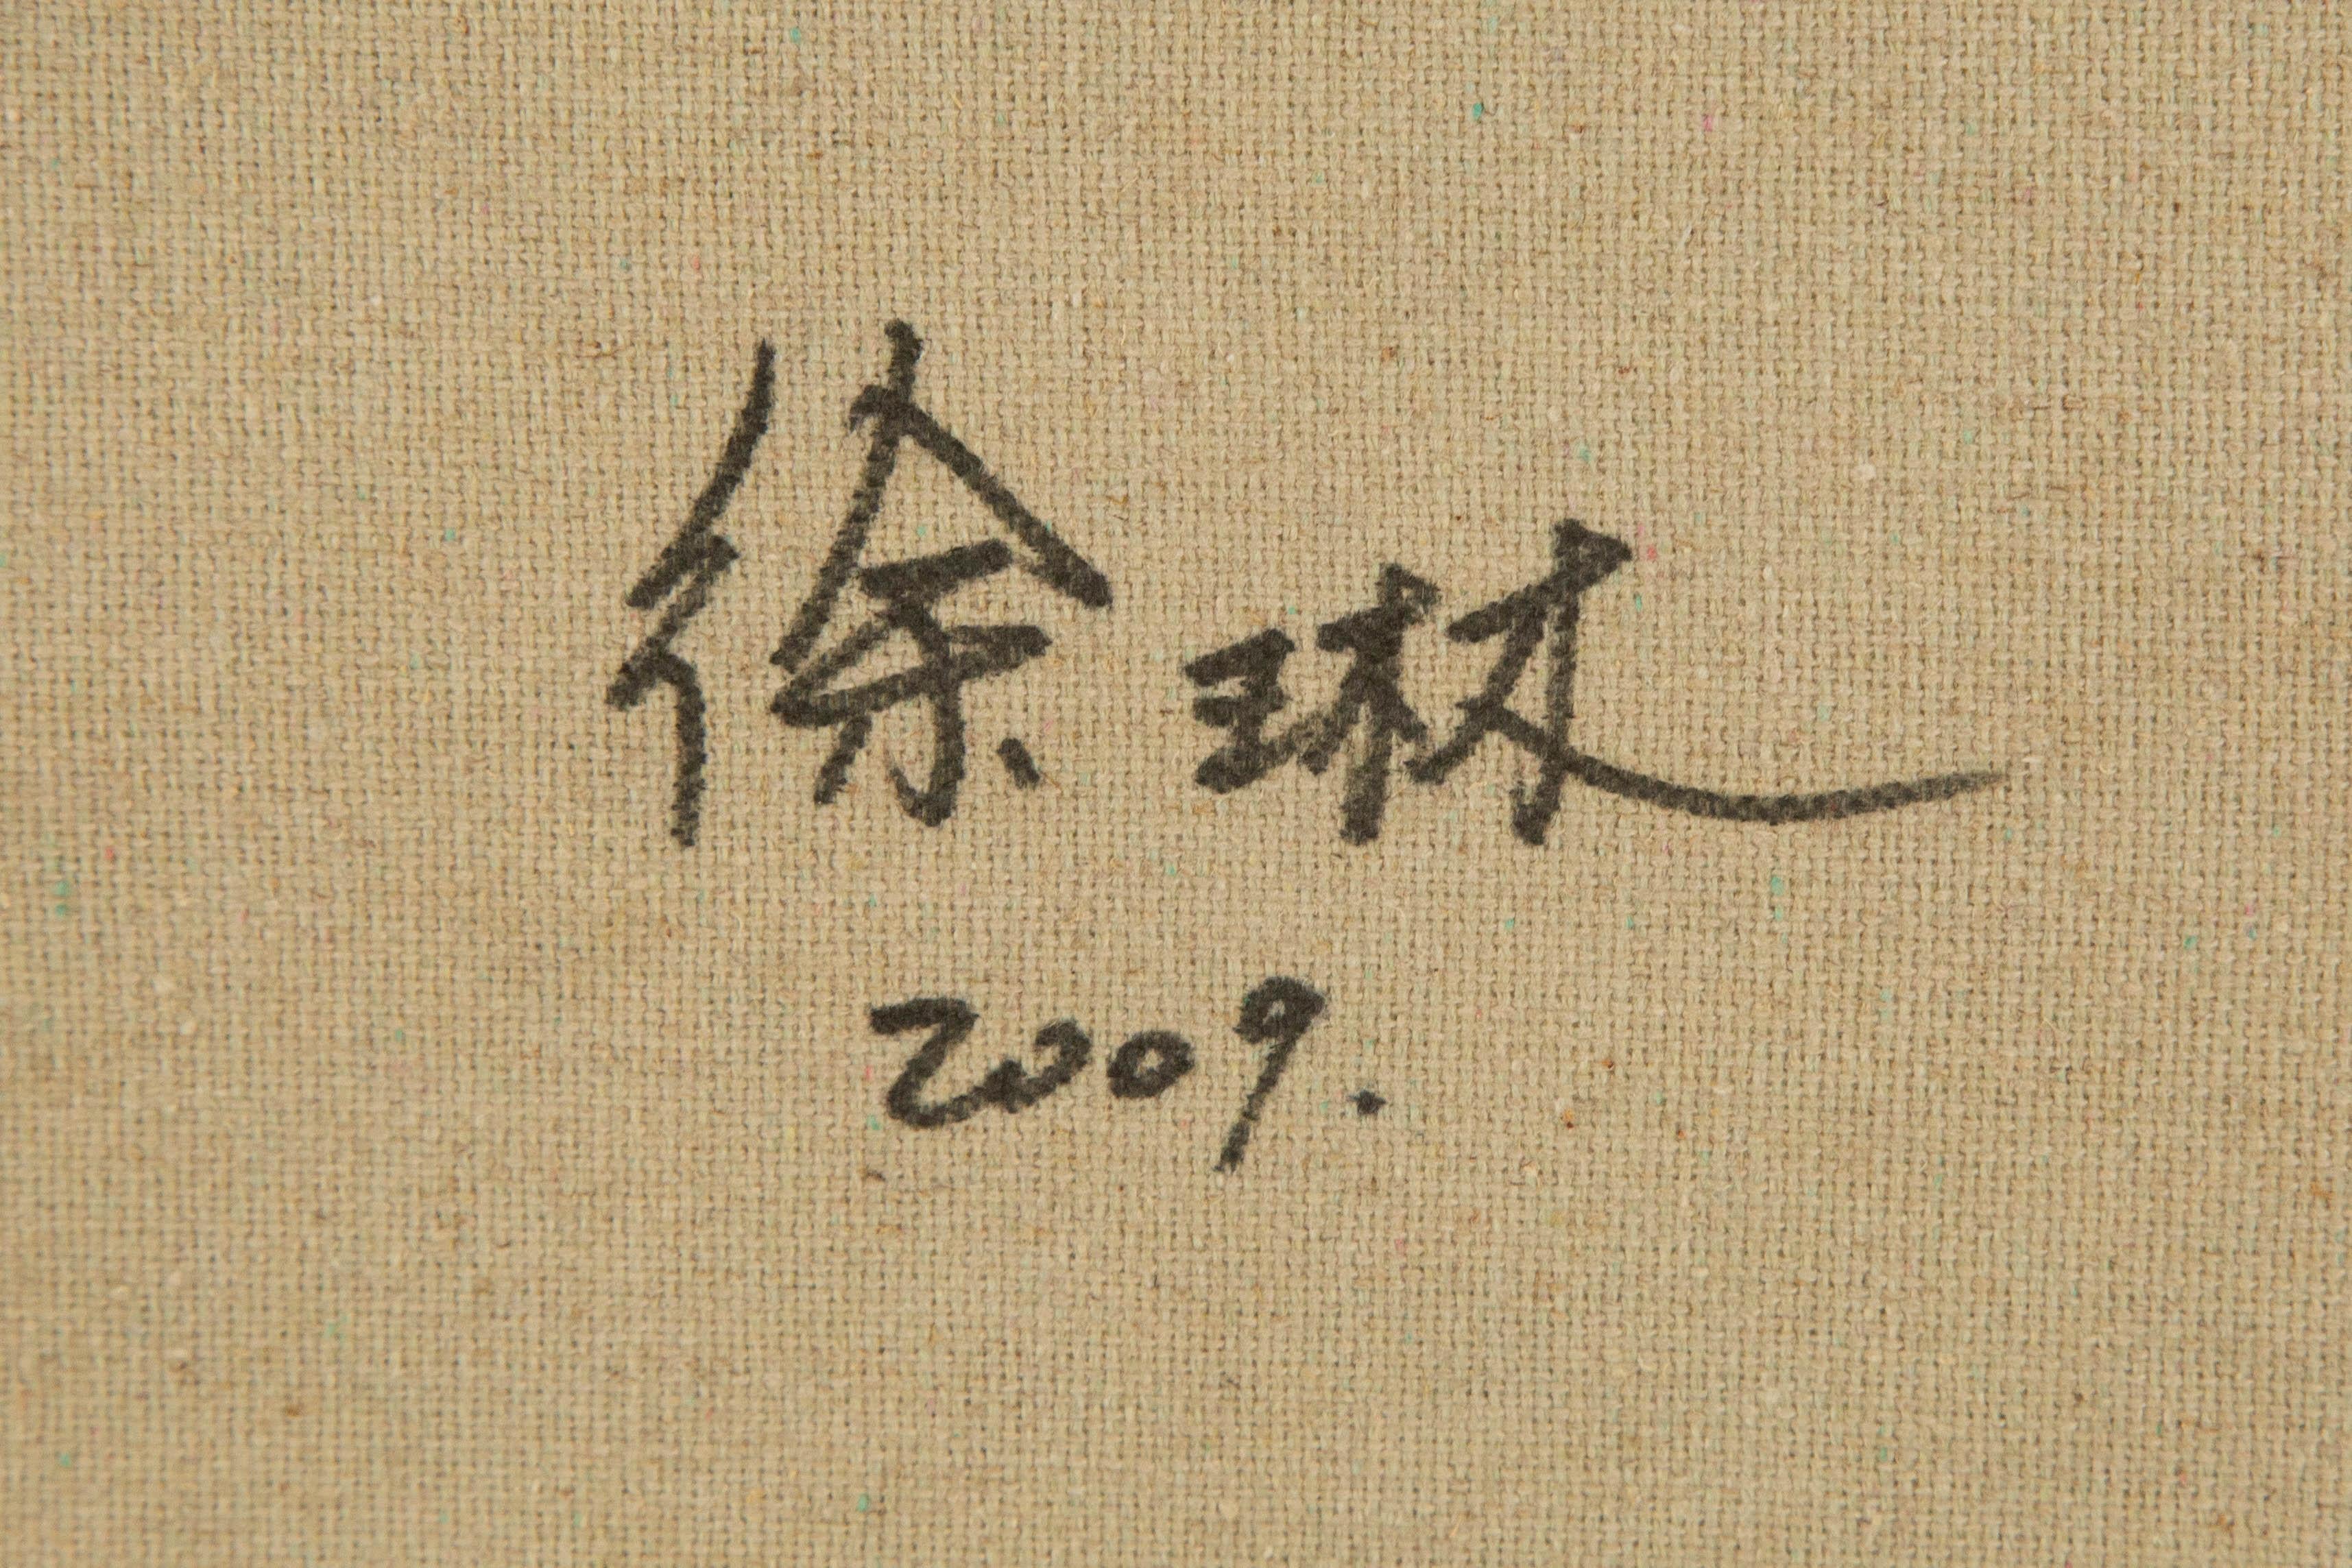 徐琳
2009.